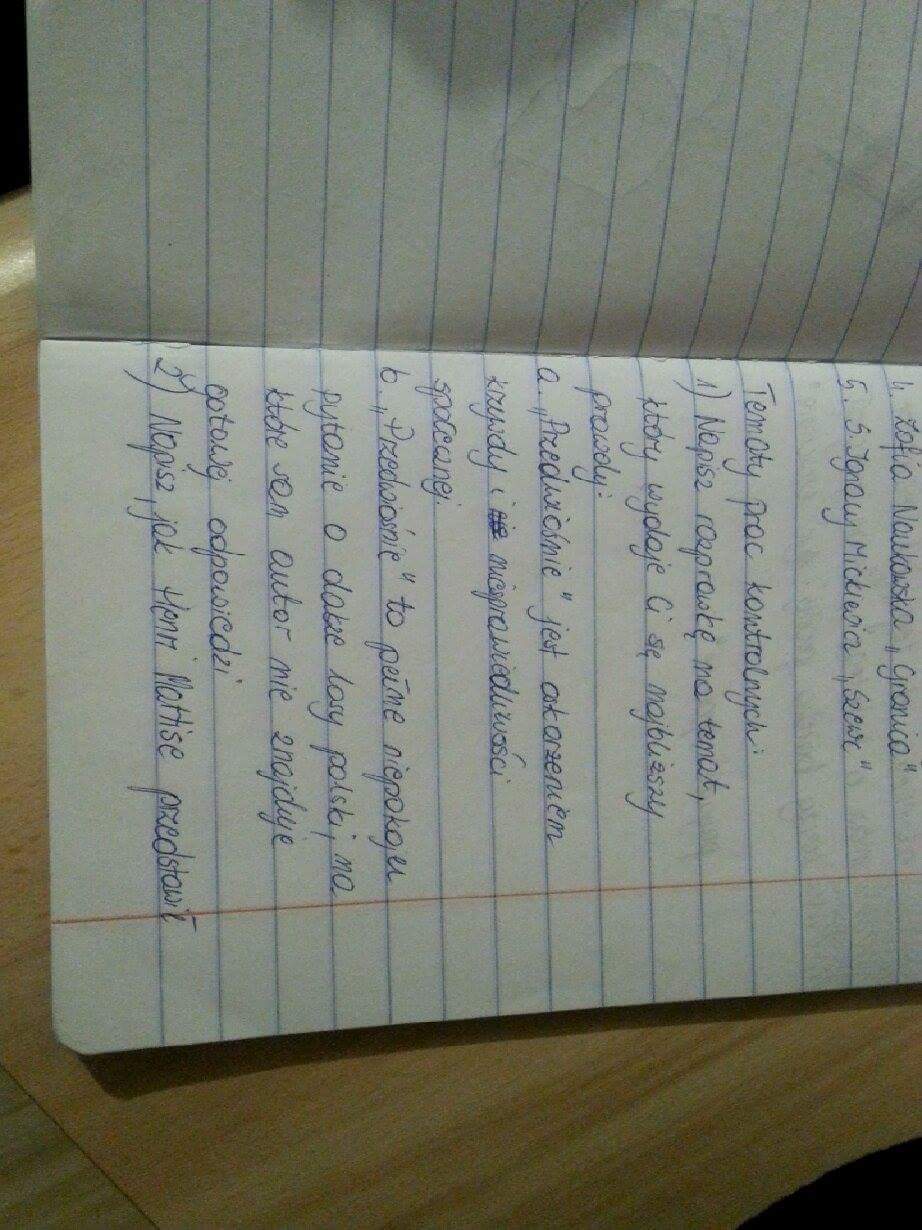 4. Zofia Nałkowska „Granica"
5. S. Ignacy Mickiewicz „Szewc"
Tematy prac kontrolnych:
1) Napisz rozprawkę na temat,
który wydaje Ci się najbliższy
prawdy:
a. „Przedwiośnie" jest oskarżeniem
krzywdy i niesprawiedliwości
społecznej
b. „Przedwiośnie" to pełne niepokoju
pytanie o dalsze losy polski, na
które sam autor nie znajduje
gotowej odpowiedzi
2) Napisz, jak Henri Mattise przedstawił